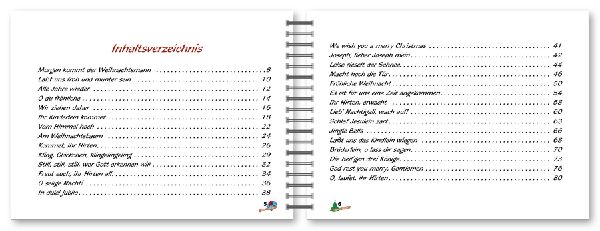 Inhaltsverzeichnis
Morgen kommt der Weihnachtsmann 8
Laßt uns froh und munter sein 10
Alle Jahre wieder 12
O du fröhliche 14
Wir ziehen daher 16
Ihr Kinderlein kommet 18
Vom Himmel hoch 22
Am Weihnachtsbaum 24
Kommet, ihr Hirten 26
Kling, Glöckchen, klingelingeling 29
Still, still, still, wer Gott erkennen will 32
Freut euch, ihr Hirten all 34
O selige Nacht! 36
In dulci jubilo 38
5
We wish you a merry Christmas 41
Joseph, lieber Joseph mein 42
Leise rieselt der Schnee 44
Macht hoch die Tür 46
Fröhliche Weihnacht 50
Es ist für uns eine Zeit angekommen 54
Ihr Hirten, erwacht 58
Lieb' Nachtigall, wach auf! 60
Schlaf Jesulein zart 62
Jingle Bells 66
Laßt uns das Kindlein wiegen 68
Brüderlein, o lass dir sagen 70
Die heil'gen drei Könige 73
God rest you merry, Gentlemen 76
O, laufet, ihr Hirten 80
6